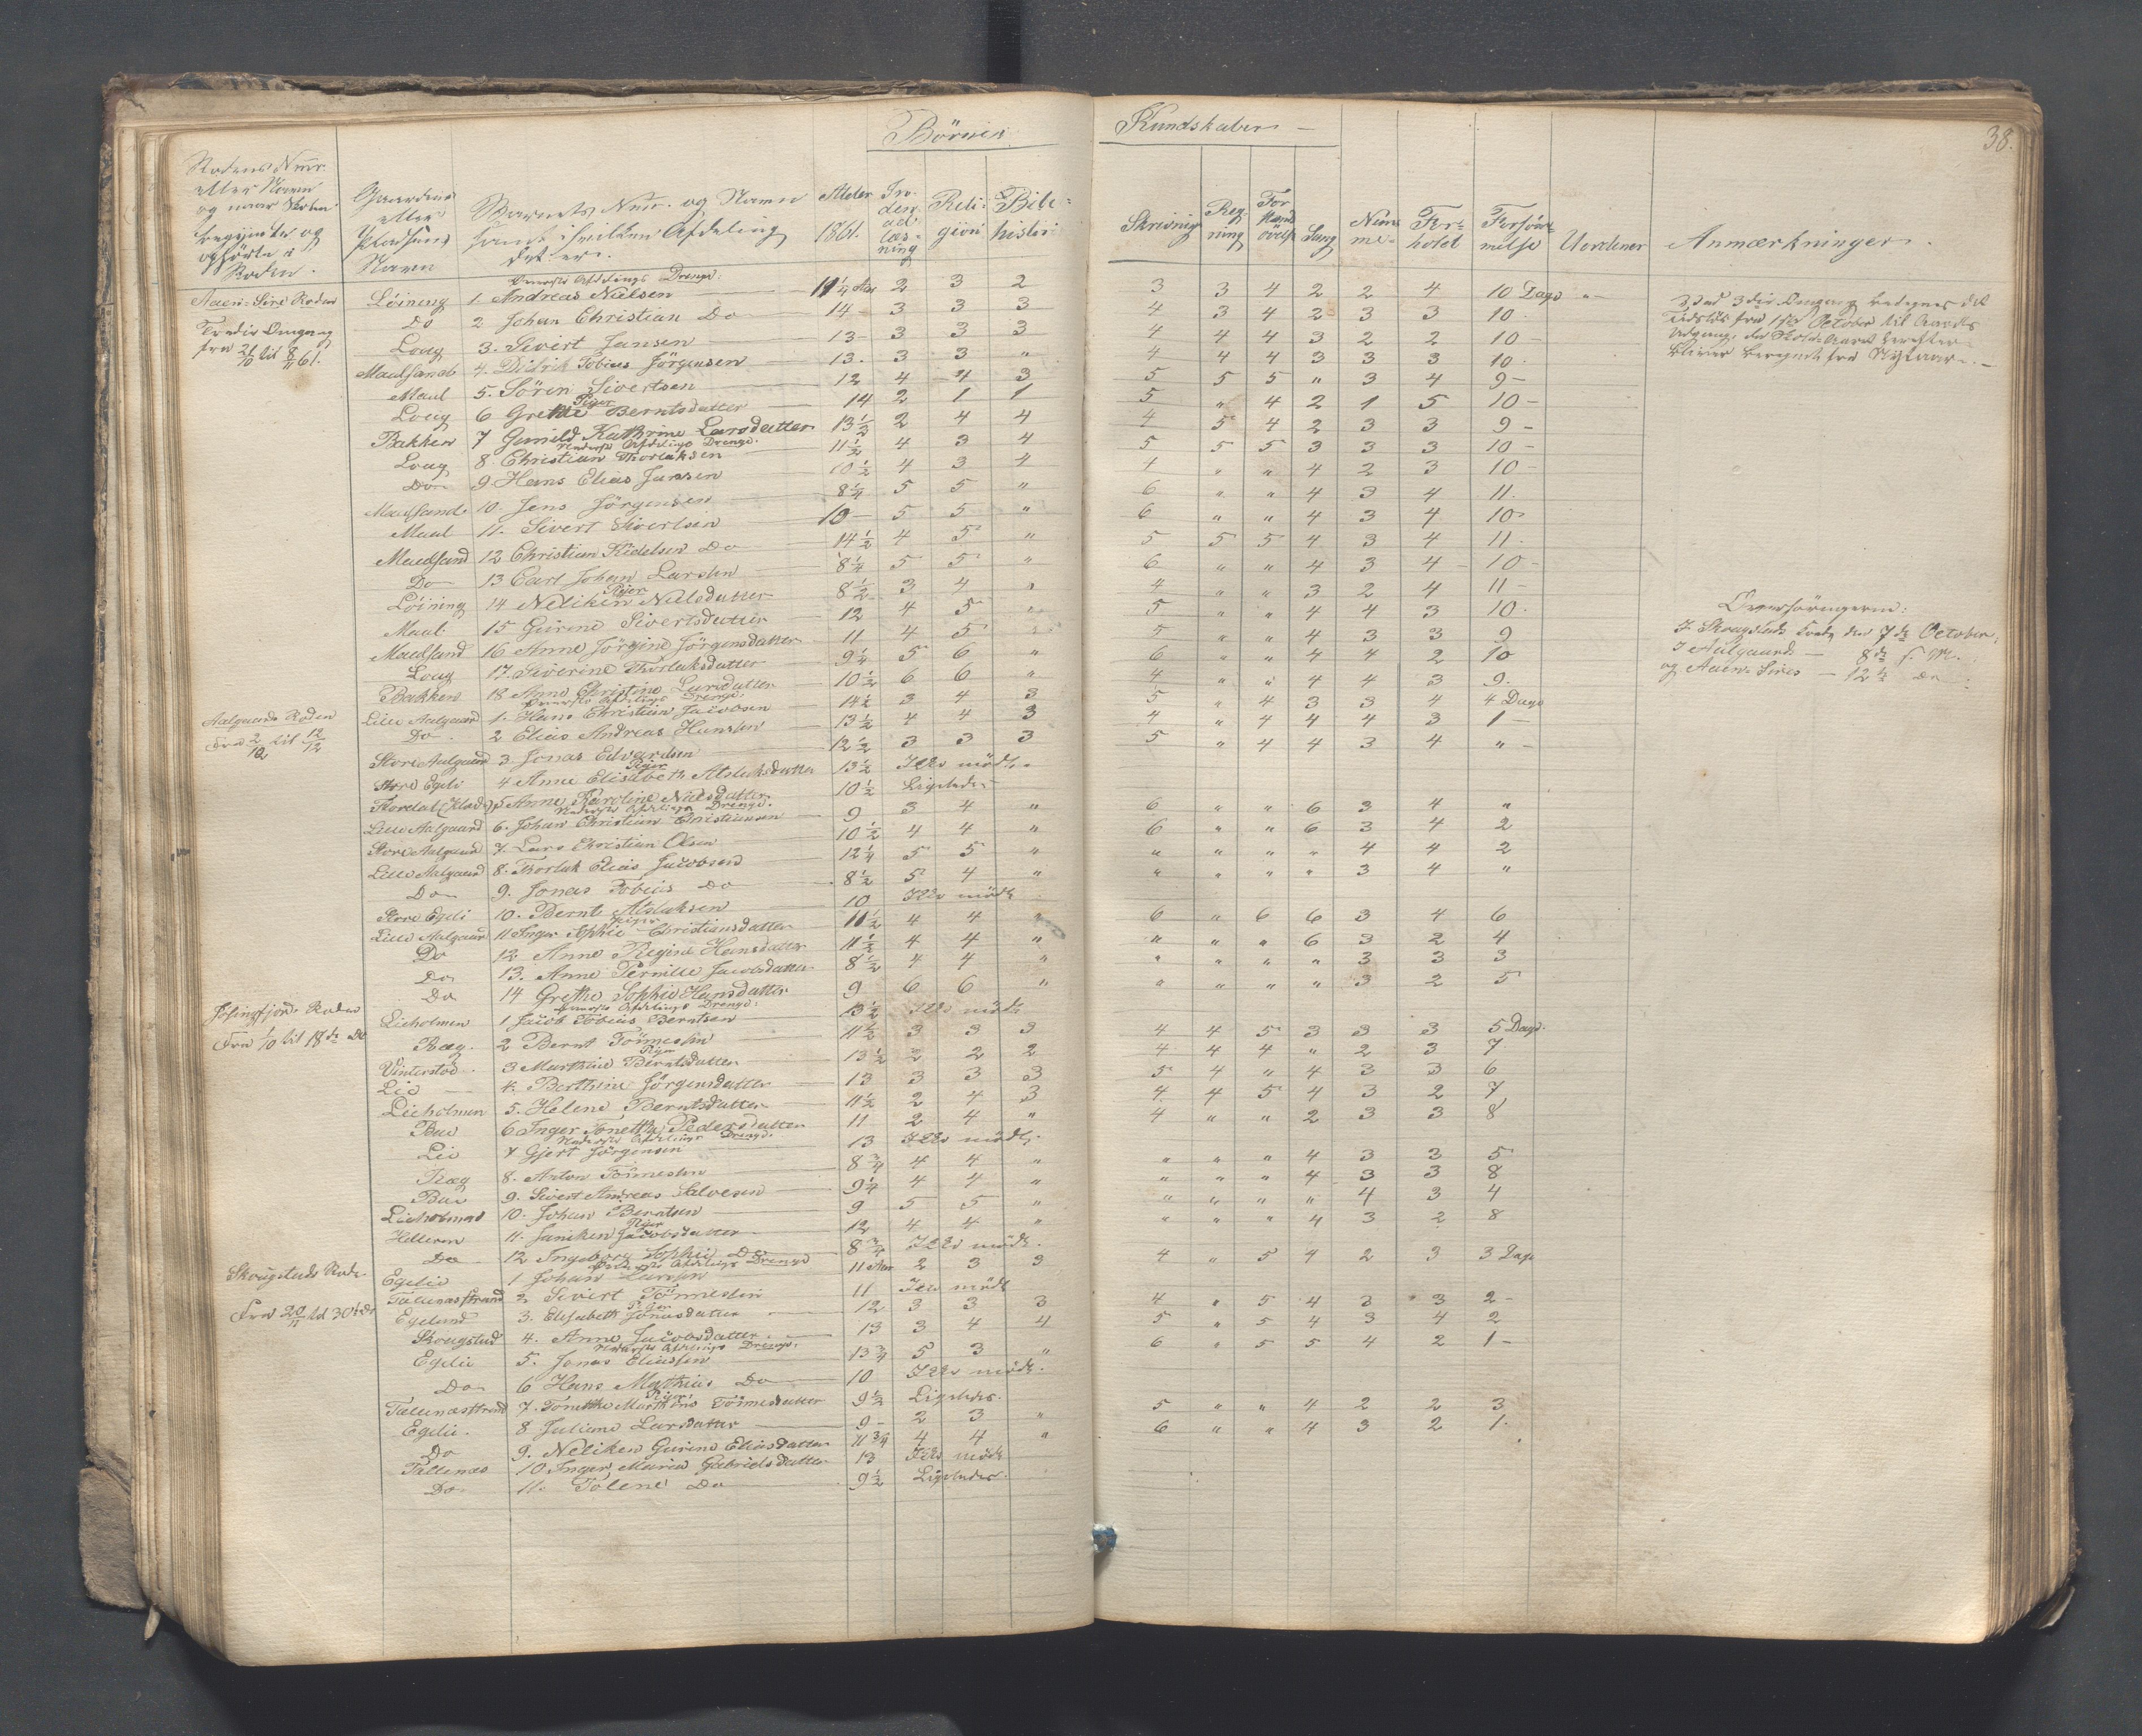 38.
Börnenes Kundskaber
Rodens Nmr. eller Navn og naar Skolen begyndte og ophörte i Roden.
Gaardens eller Pladsens Navn
Barnets Nmr. og Navn samt i hvilken Afdeling det er.
Alder 1861.
Religion
Bibelhistorie
Skrivning
Regning
Sang
Nemme
Forhold
Forsömmelse
Udeblevne
Anmærkninger.
Øverste Afdelings Drenge.
Aaen-Sire Roden Löining 1. Andreas Nielsen 11 1/4 Aar 2 3 2 3 3 4 2 2 4 10 Dage
Do 2 Johan Christian Do 14 3 3 3 4 3 4 2 3 3 10
Tredie Omgang
fra 21/10 til 8/11 61.
Loug 3. Sivert Jansen 13 3 3 3 4 4 4 3 2 2 10
Maalsand 4. Didrik Tobias Jörgensen 13. 3 3 " 4 4 4 3 3 3 10
Maal 5. Sören Sivertsen 12 4 4 3 5 5 5 " 3 4 9
Piger
Loug 6 Grethe Berntsdatter 14 2 1 1 5 " 4 2 1 5 10
Bakken 7 Gunild Kathrine Larsdatter 13 1/2 2 4 4 4 5 4 2 3 3 9
Nederste Afdelings Drenge.
Loug 8. Christian Thorlaksen 11 1/2 4 3 4 5 5 5 3 3 3 10
Do 9. Hans Elias Jansen 10 1/2 4 3 4 4 " " 4 2 3 10
Maalsand 10. Jens Jörgensen 8 1/4 5 5 " 6 " " 4 3 4 11.
Maal 11. Sivert Sivertsen 10 5 5 " 6 " " 4 3 4 10
Maalsand 12 Christian Kidelsen Do 14 1/2 4 5 " 5 5 5 4 3 4 11.
Do 13 Carl Johan Larsen 8 1/4 5 5 " 6 " " 4 3 4 10
Piger
Löining 14 Neliken Nielsdatter 8 1/2 3 4 " 4 " " 3 2 4 11
Maal 15 Gurine Sivertsdatter 12 4 5 " 5 " " 4 4 3 10.
Maalsand 16 Anne Jörgine Jörgensdatter 11 4 5 " 5 " " 4 3 3 9
Loug 17. Siverine Thorlaksdatter 9 1/4 5 6 " 6 " " 4 4 2 10
Bakken 18 Anne Christine Larsdatter 10 1/2 6 6 " 4 " " 4 4 3 9.
Øverste Afdelings Drenge.
Aalgaards Roden Lille Aalgaard 1. Hans Christian Jacobsen 14 1/2 3 4 3 5 " 4 3 3 4 4 Dage
Do 2 Elias Andreas Hansen 13 1/2 4 4 3 4 " 4 4 4 3 1
Store Aalgaard 3. Jonas Edvardsen 12 1/2 3 3 3 5 " 4 4 3 4 "
Piger
Store Egeli 4 Anne Elisabeth Atslaksdatter 13 1/2 Ikke mödt.
5 Anne Karoline Nielsdatter 10 1/2 Ligeledes
Nederste Afdelings Drenge.
Lille Aalgaard 6. Johan Christian Christiansen 9 3 4 " 6 " " 6 3 4 "
Store Aalgaard 7. Lars Christian Olsen 10 1/2 4 4 " 6 " " 6 3 4 2
Lille Aalgaard 8. Thorlak Elias Jacobsen 12 1/4 5 5 " " " " " 4 4 2
Do 9. Jonas Tobias Do 8 1/2 5 4 " " " " " 3 4 "
Store Egeli 10. Bernt Atslaksen 10 Ikke mödt
Piger
Lille Aalgaard 11 Inger Sophie Christiansdatter 11 1/2 4 4 " 6 " 6 6 3 4 6
Do 12 Anne Regine Hansdatter 11 1/2 4 4 " " " " 6 3 2 4
Do 13. Anne Pernille Jacobsdatter 8 1/2 4 4 " " " " " 3 3 3
Do 14 Grethe Sophie Hansdatter 9 6 6 " " " " " 3 2 5
Øverste Afdelings Drenge.
Jösingfjords Roden Lieholmen 1 Jacob Tobias Berntsen 13 1/2 Ikke mödt
Ræg 2 Bernt Tönnesen 11 1/2 3 3 3 4 4 5 3 3 3 5 Dage.
Piger
Vinterstöd 3 Marthine Berntsdatter 13 1/2 2 2 2 4 4 4 " 2 3 7
Lie 4. Berthine Jörgensdatter 13 3 3 3 5 4 " 4 3 3 6
Lieholmen 5. Helene Berntsdatter 11 1/2 2 4 3 4 4 5 4 3 2 7
Bu 6 Inger Tonette Pedersdatter 11 2 4 " 4 " " 2 3 3 8
Nederste Afdelings Drenge.
Lie 7 Gjert Jörgensen 13 Ikke mödt.
Ræg 8. Anton Tönnesen 8 3/4 4 4 " " " " 4 3 3 5
Bu 9. Sivert Andreas Salvesen 9 1/4 4 4 " " " " 4 3 3 8
Lieholmen 10. Johan Berntsen 9 5 5 " " " " " 4 3 4
Piger
Helleren 11. Janiken Jacobsdatter 12 4 4 " " " " 4 3 2 8
Do 12 Ingeborg Sophie Do 8 3/4 Ikke mödt.
Øverste Afdelings Drenge
Skougstads Rode Egelie 1 Johan Larsen 11 Aar 2 3 3 4 " 5 4 2 3 3 Dage
Tallenæsstrand 2 Sivert Tönnesen 11 Ikke mödt
Piger
Egeland 3. Elisabeth Jonasdatter 12 3 3 3 4 " 5 4 3 3 2
Skougstad 4. Anne Jacobsdatter 13 3 4 4 5 " 5 4 3 4 2
Nederste Afdelings Drenge.
Egelie 5. Jonas Eliassen 13 3/4 5 3 " 6 " 5 5 4 2 1
Do 6 Hans Mathias Do 10 Ikke mödt.
Piger.
Tallenæsstrand 7. Tonette Marthine Tönnesdatter 9 1/2 Ligeledes.
Egelie. 8 Juliane Larsdatter 9 2 3 " 5 " " 4 2 2 3
Do 9. Neliken Gurine Eliasdatter 11 3/4 4 4 " 6 " " 4 3 2 1.
Tallenæs 10 Inger Maria Gabrielsdatter 13 Ikke mödt
Do 11. Tolene Do 9 1/2 Ligeledes.
Overhöringerne:
I Skougstads Kreds den 7de October,
I Aalgaards — 8de
og Aaen-Sires — 12te